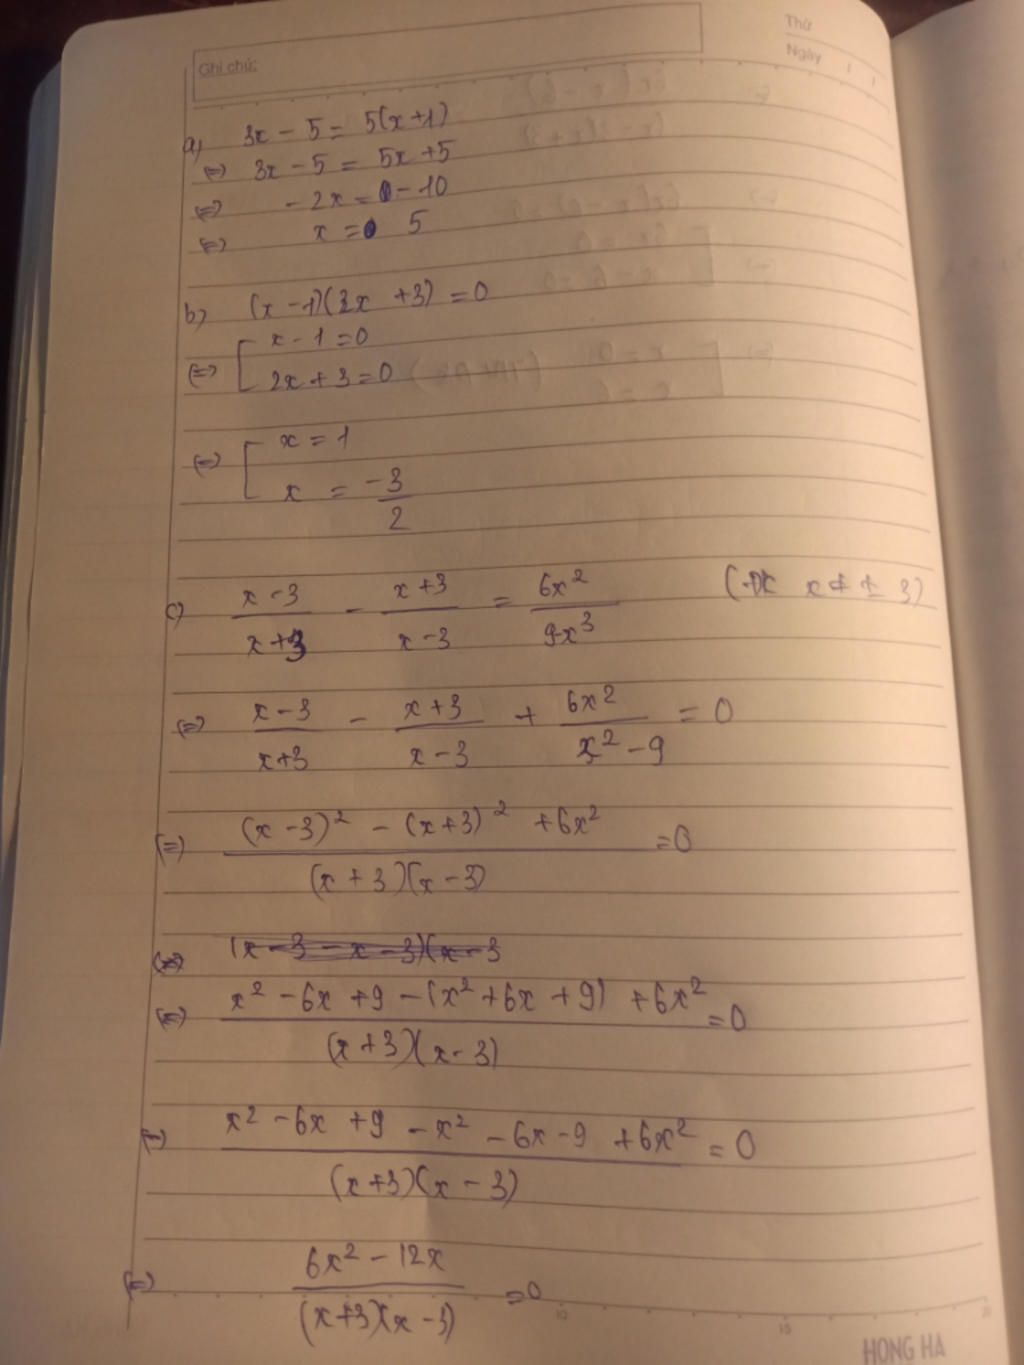 Ghi chú:
Thứ
Ngày / /
a) 3x - 5 = 5(x+1)
(=) 3x - 5 = 5x + 5
(=) - 2x = - 10
(=) x = 5
b) (x - 1)(2x + 3) = 0
(=) [ x - 1 = 0
2x + 3 = 0
(=) [ x = 1
x = -3/2
c) (x - 3)/(x + 3) - (x + 3)/(x - 3) = 6x²/(9-x³) (ĐK x ≠ ± 3)
(=) (x - 3)/(x+3) - (x + 3)/(x - 3) + 6x²/(x² - 9) = 0
(=) ((x - 3)² - (x + 3)² + 6x²)/((x + 3)(x - 3)) = 0
(=) (x - 3 - x - 3)(x - 3
(=) (x² - 6x + 9 - (x² + 6x + 9) + 6x²)/((x + 3)(x - 3)) = 0
(=) (x² - 6x + 9 - x² - 6x - 9 + 6x²)/((x+3)(x - 3)) = 0
(=) (6x² - 12x)/((x+3)(x - 3)) = 0
10 15 20
HONG HA